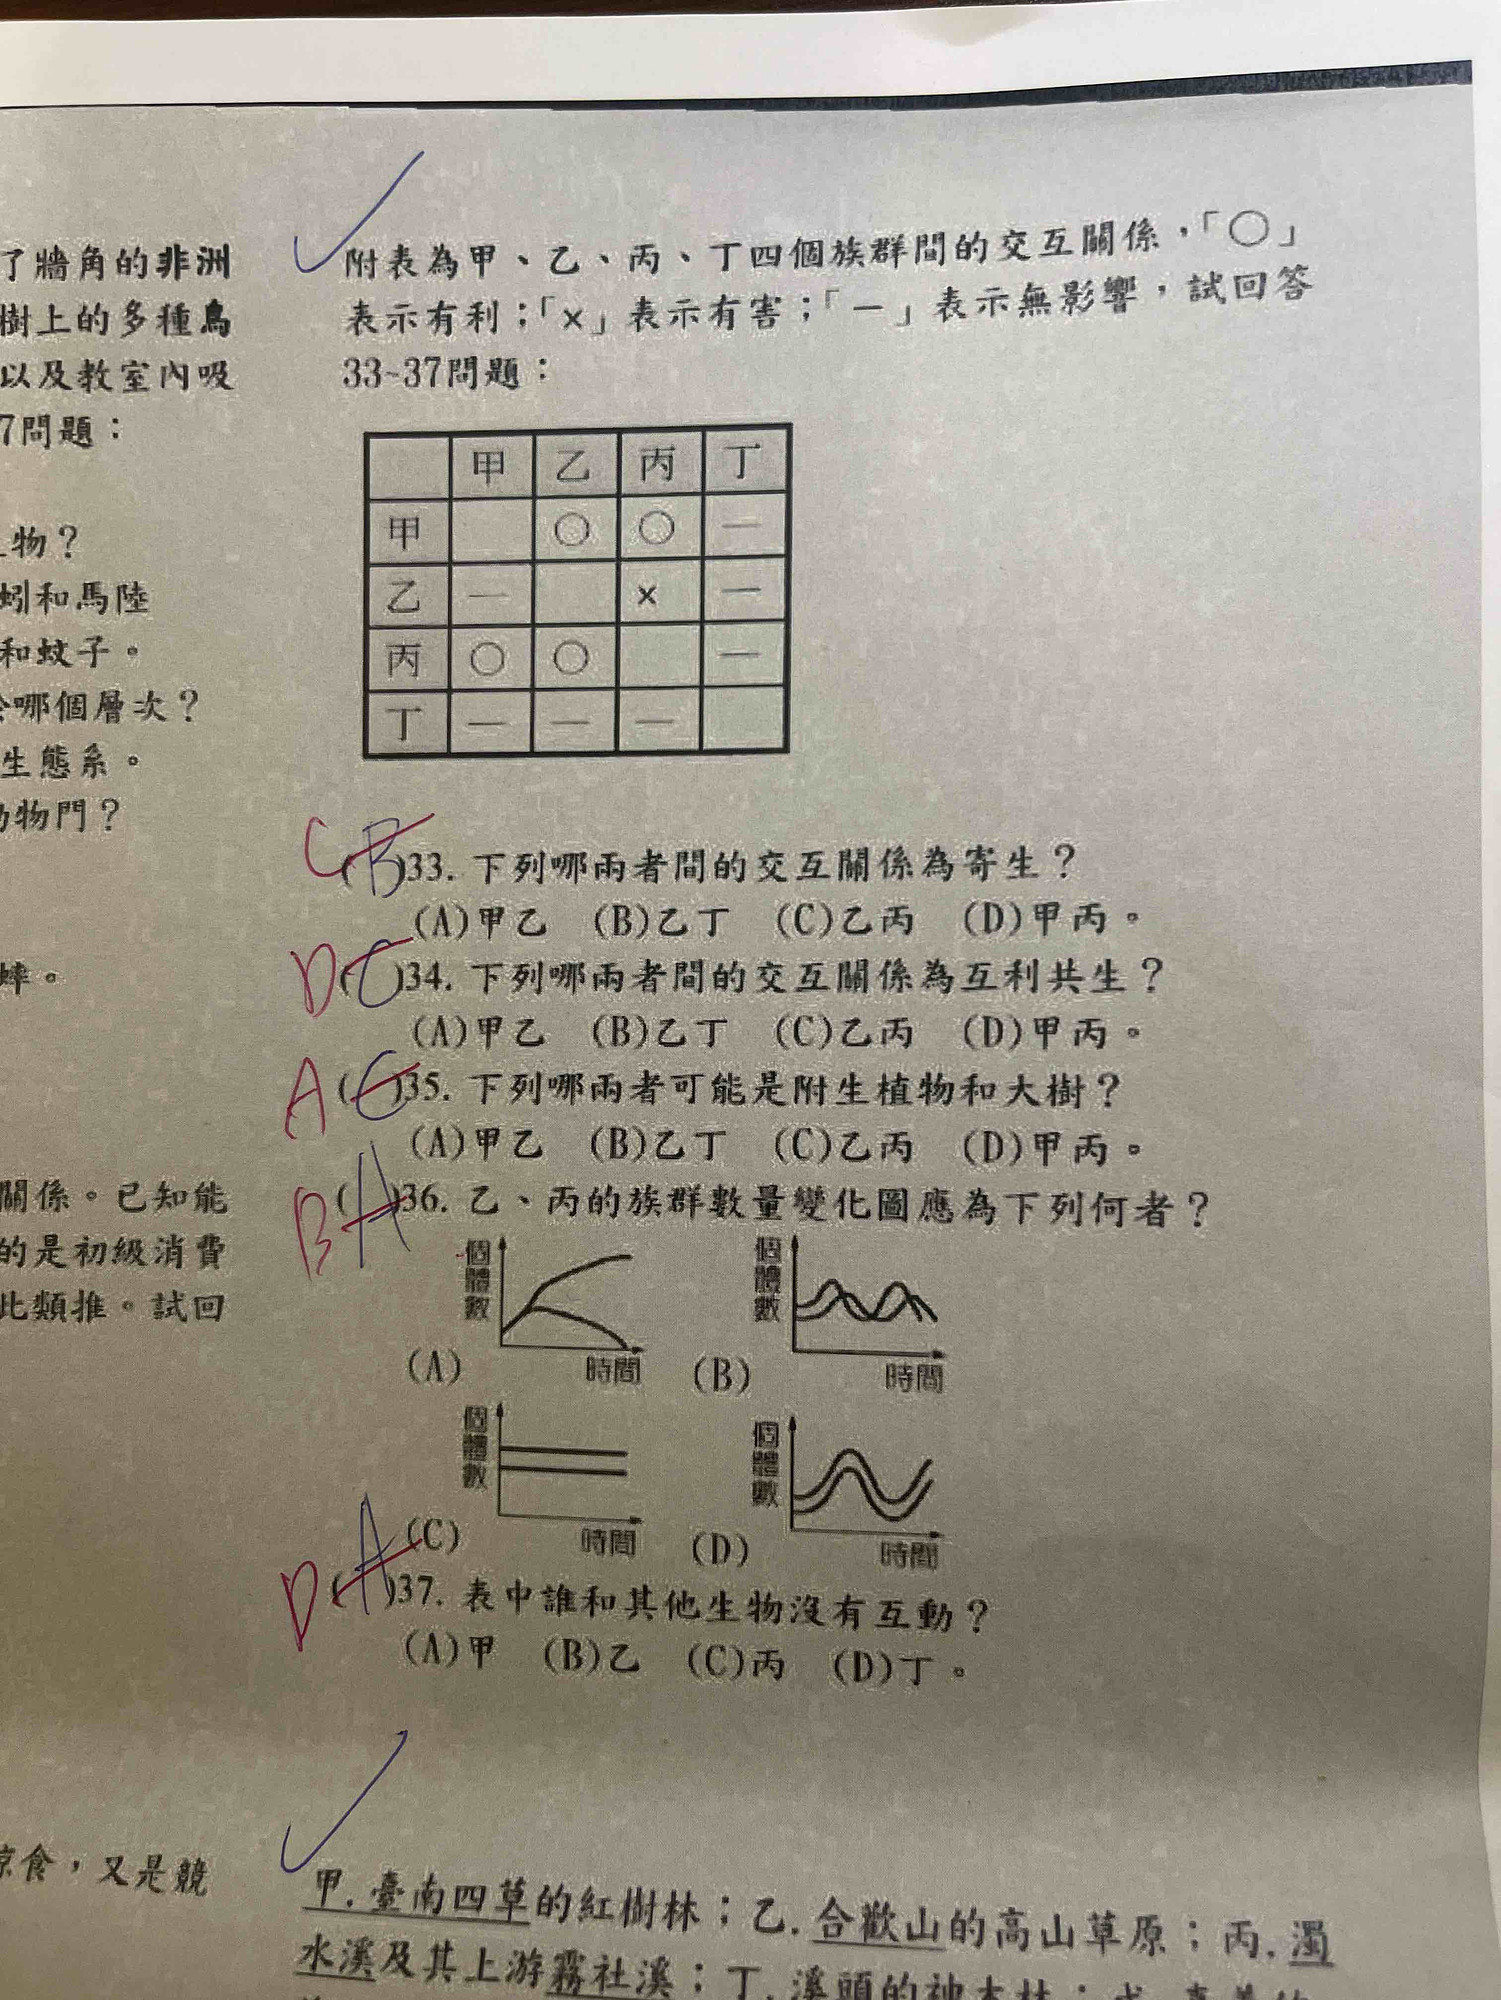 了牆角的非洲
樹上的多種鳥
以及教室內吸
7問題：
物？
蚓和馬陸
和蚊子。
哪個層次？
生態系。
物門？
蟀。
關係。已知能
的是初級消費
此類推。試回
食，又是競
附表為甲、乙、丙、丁四個族群間的交互關係，「○」
表示有利；「×」表示有害；「－」表示無影響，試回答
33~37問題：
甲 乙 丙 丁
甲 ○ ○ －
乙 － × －
丙 ○ ○ －
丁 － － －
C(B)33. 下列哪兩者間的交互關係為寄生？
(A)甲乙 (B)乙丁 (C)乙丙 (D)甲丙。
D(C)34. 下列哪兩者間的交互關係為互利共生？
(A)甲乙 (B)乙丁 (C)乙丙 (D)甲丙。
A(C)35. 下列哪兩者可能是附生植物和大樹？
(A)甲乙 (B)乙丁 (C)乙丙 (D)甲丙。
B(A)36. 乙、丙的族群數量變化圖應為下列何者？
個體數 個體數
(A) 時間 (B) 時間
個體數 個體數
(C) 時間 (D) 時間
D(A)37. 表中誰和其他生物沒有互動？
(A)甲 (B)乙 (C)丙 (D)丁。
甲.臺南四草的紅樹林；乙.合歡山的高山草原；丙.濁
水溪及其上游霧社溪；丁.溪頭的神木林；戊.